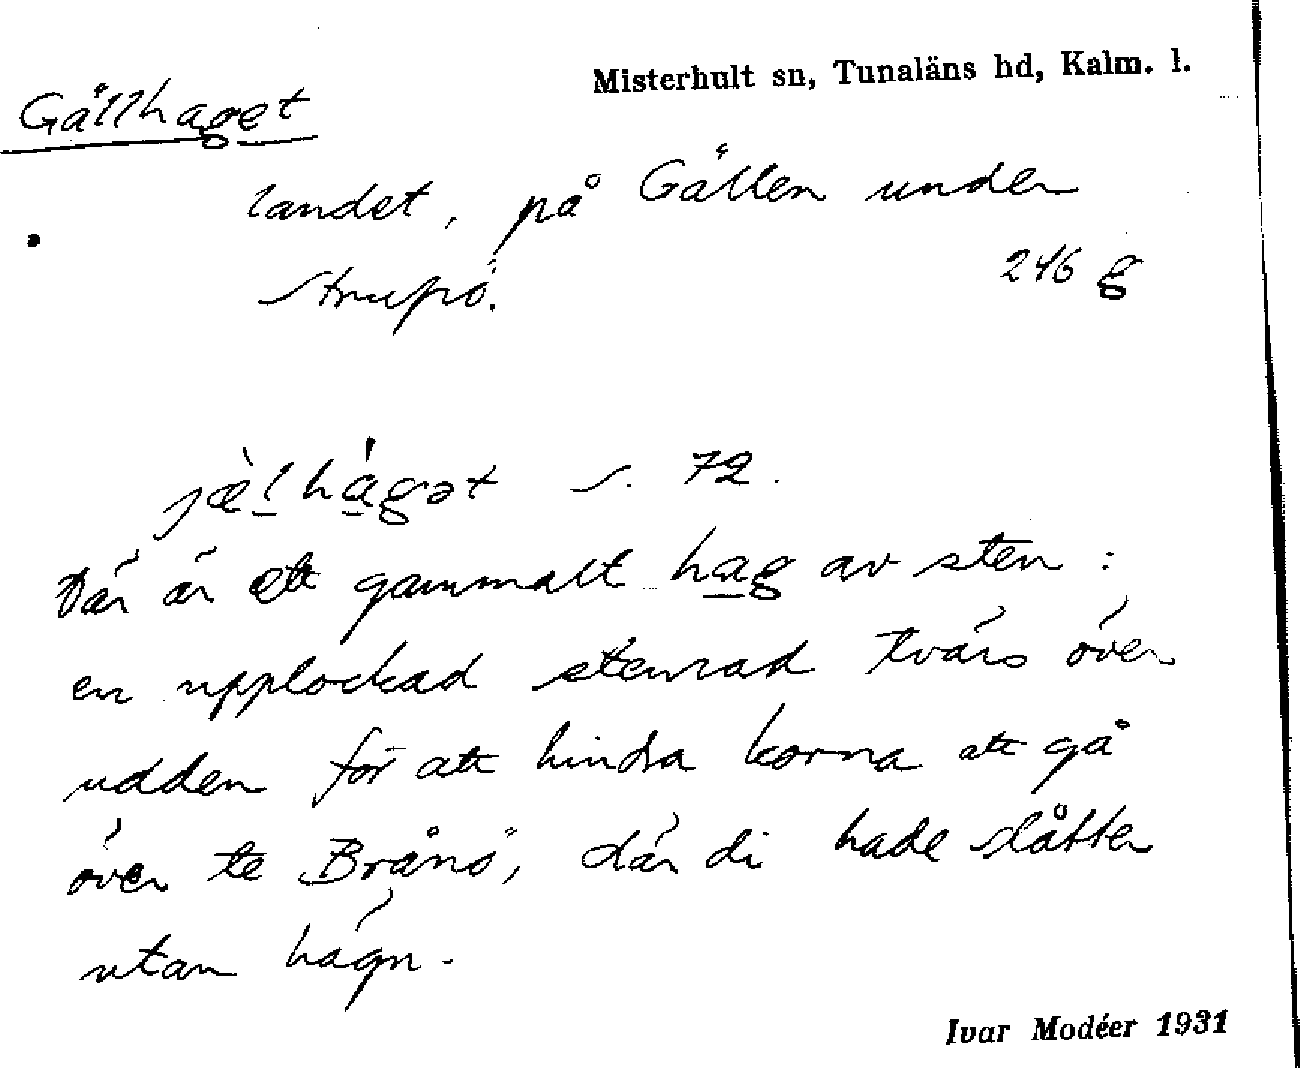 Misterhult sn, Tunaläns hd, Kalm. l.
Gällhaget
landet, på Gällen under
Strupö.
246 g
jæ̀lhágət s. 72.
Där är ett gammalt hag av sten:
en upplockad stenrad tvärs över
udden för att hindra korna att gå
över te Brånö, där di hade slåtter
utan hägn.
Ivar Modéer 1931